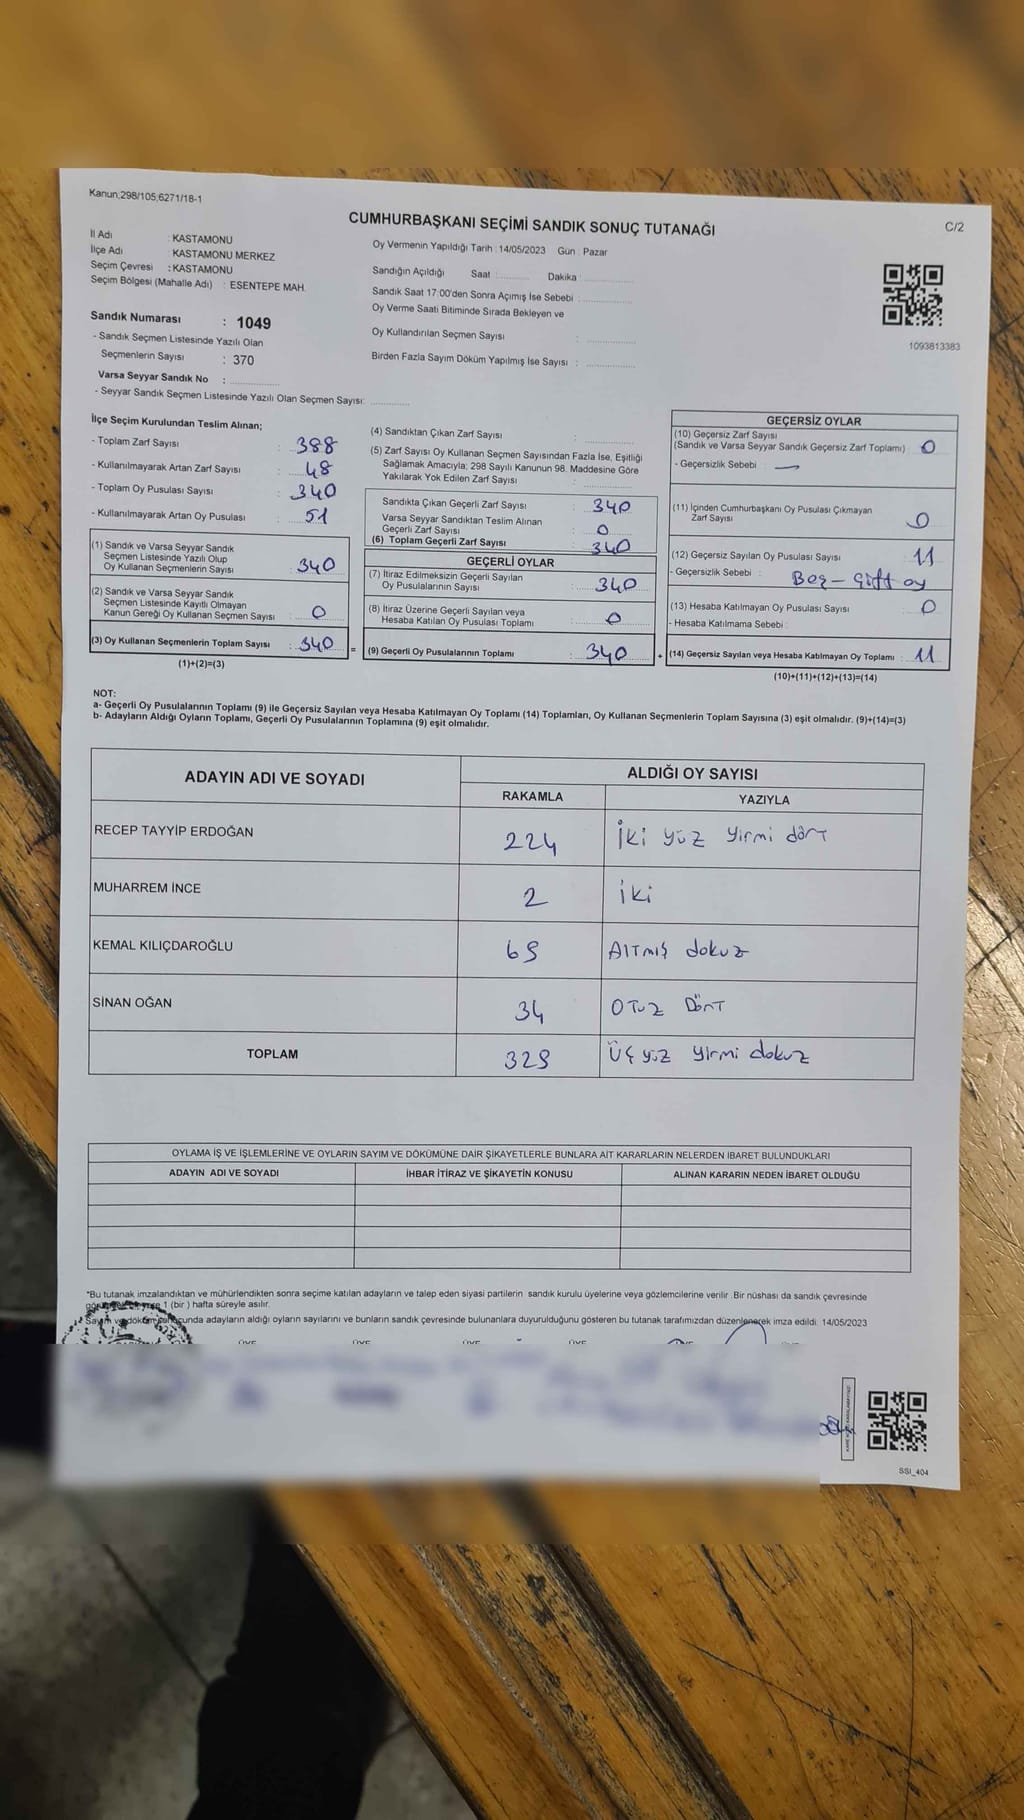 Kanun;298/105;6271/18-1
CUMHURBAŞKANI SEÇİMİ SANDIK SONUÇ TUTANAĞI
C/2
İl Adı : KASTAMONU
İlçe Adı KASTAMONU MERKEZ
Seçim Çevresi : KASTAMONU
Seçim Bölgesi (Mahalle Adı) : ESENTEPE MAH.
Oy Vermenin Yapıldığı Tarih : 14/05/2023 Gün : Pazar
Sandığın Açıldığı Saat : Dakika :
Sandık Saat 17:00'den Sonra Açımış İse Sebebi :
Oy Verme Saati Bitiminde Sırada Bekleyen ve
Oy Kullandırılan Seçmen Sayısı :
Birden Fazla Sayım Döküm Yapılmış İse Sayısı :
1093813383
Sandık Numarası : 1049
- Sandık Seçmen Listesinde Yazılı Olan
Seçmenlerin Sayısı : 370
Varsa Seyyar Sandık No :
- Seyyar Sandık Seçmen Listesinde Yazılı Olan Seçmen Sayısı:
İlçe Seçim Kurulundan Teslim Alınan;
- Toplam Zarf Sayısı : 388
- Kullanılmayarak Artan Zarf Sayısı : 48
- Toplam Oy Pusulası Sayısı : 340
- Kullanılmayarak Artan Oy Pusulası : 51
(1) Sandık ve Varsa Seyyar Sandık
Seçmen Listesinde Yazılı Olup
Oy Kullanan Seçmenlerin Sayısı : 340
(2) Sandık ve Varsa Seyyar Sandık
Seçmen Listesinde Kayıtlı Olmayan
Kanun Gereği Oy Kullanan Seçmen Sayısı : 0
(3) Oy Kullanan Seçmenlerin Toplam Sayısı : 340
(1)+(2)=(3)
(4) Sandıktan Çıkan Zarf Sayısı :
(5) Zarf Sayısı Oy Kullanan Seçmen Sayısından Fazla İse, Eşitliği
Sağlamak Amacıyla; 298 Sayılı Kanunun 98. Maddesine Göre
Yakılarak Yok Edilen Zarf Sayısı :
Sandıkta Çıkan Geçerli Zarf Sayısı : 340
Varsa Seyyar Sandıktan Teslim Alınan
Geçerli Zarf Sayısı : 0
(6) Toplam Geçerli Zarf Sayısı : 340
GEÇERLİ OYLAR
(7) İtiraz Edilmeksizin Geçerli Sayılan
Oy Pusulalarının Sayısı : 340
(8) İtiraz Üzerine Geçerli Sayılan veya
Hesaba Katılan Oy Pusulası Toplamı : 0
= (9) Geçerli Oy Pusulalarının Toplamı : 340
GEÇERSİZ OYLAR
(10) Geçersiz Zarf Sayısı
(Sandık ve Varsa Seyyar Sandık Geçersiz Zarf Toplamı) : 0
- Geçersizlik Sebebi : —
(11) İçinden Cumhurbaşkanı Oy Pusulası Çıkmayan
Zarf Sayısı : 0
(12) Geçersiz Sayılan Oy Pusulası Sayısı : 11
- Geçersizlik Sebebi : Boş - Çift oy
(13) Hesaba Katılmayan Oy Pusulası Sayısı : 0
- Hesaba Katılmama Sebebi :
+ (14) Geçersiz Sayılan veya Hesaba Katılmayan Oy Toplamı : 11
(10)+(11)+(12)+(13)=(14)
NOT:
a- Geçerli Oy Pusulalarının Toplamı (9) ile Geçersiz Sayılan veya Hesaba Katılmayan Oy Toplamı (14) Toplamları, Oy Kullanan Seçmenlerin Toplam Sayısına (3) eşit olmalıdır. (9)+(14)=(3)
b- Adayların Aldığı Oyların Toplamı, Geçerli Oy Pusulalarının Toplamına (9) eşit olmalıdır.
ADAYIN ADI VE SOYADI
ALDIĞI OY SAYISI
RAKAMLA YAZIYLA
RECEP TAYYİP ERDOĞAN 224 İki yüz yirmi dört
MUHARREM İNCE 2 İki
KEMAL KILIÇDAROĞLU 69 Altmış dokuz
SİNAN OĞAN 34 Otuz Dört
TOPLAM 329 Üç yüz yirmi dokuz
OYLAMA İŞ VE İŞLEMLERİNE VE OYLARIN SAYIM VE DÖKÜMÜNE DAİR ŞİKAYETLERLE BUNLARA AİT KARARLARIN NELERDEN İBARET BULUNDUKLARI
ADAYIN ADI VE SOYADI İHBAR İTİRAZ VE ŞİKAYETİN KONUSU ALINAN KARARIN NEDEN İBARET OLDUĞU
*Bu tutanak imzalandıktan ve mühürlendikten sonra seçime katılan adayların ve talep eden siyasi partilerin sandık kurulu üyelerine veya gözlemcilerine verilir. Bir nüshası da sandık çevresinde
1 (bir) hafta süreyle asılır.
adayların aldığı oyların sayılarını ve bunların sandık çevresinde bulunanlara duyurulduğunu gösteren bu tutanak tarafımızdan düzenlenerek imza edildi. 14/05/2023
SSI_404